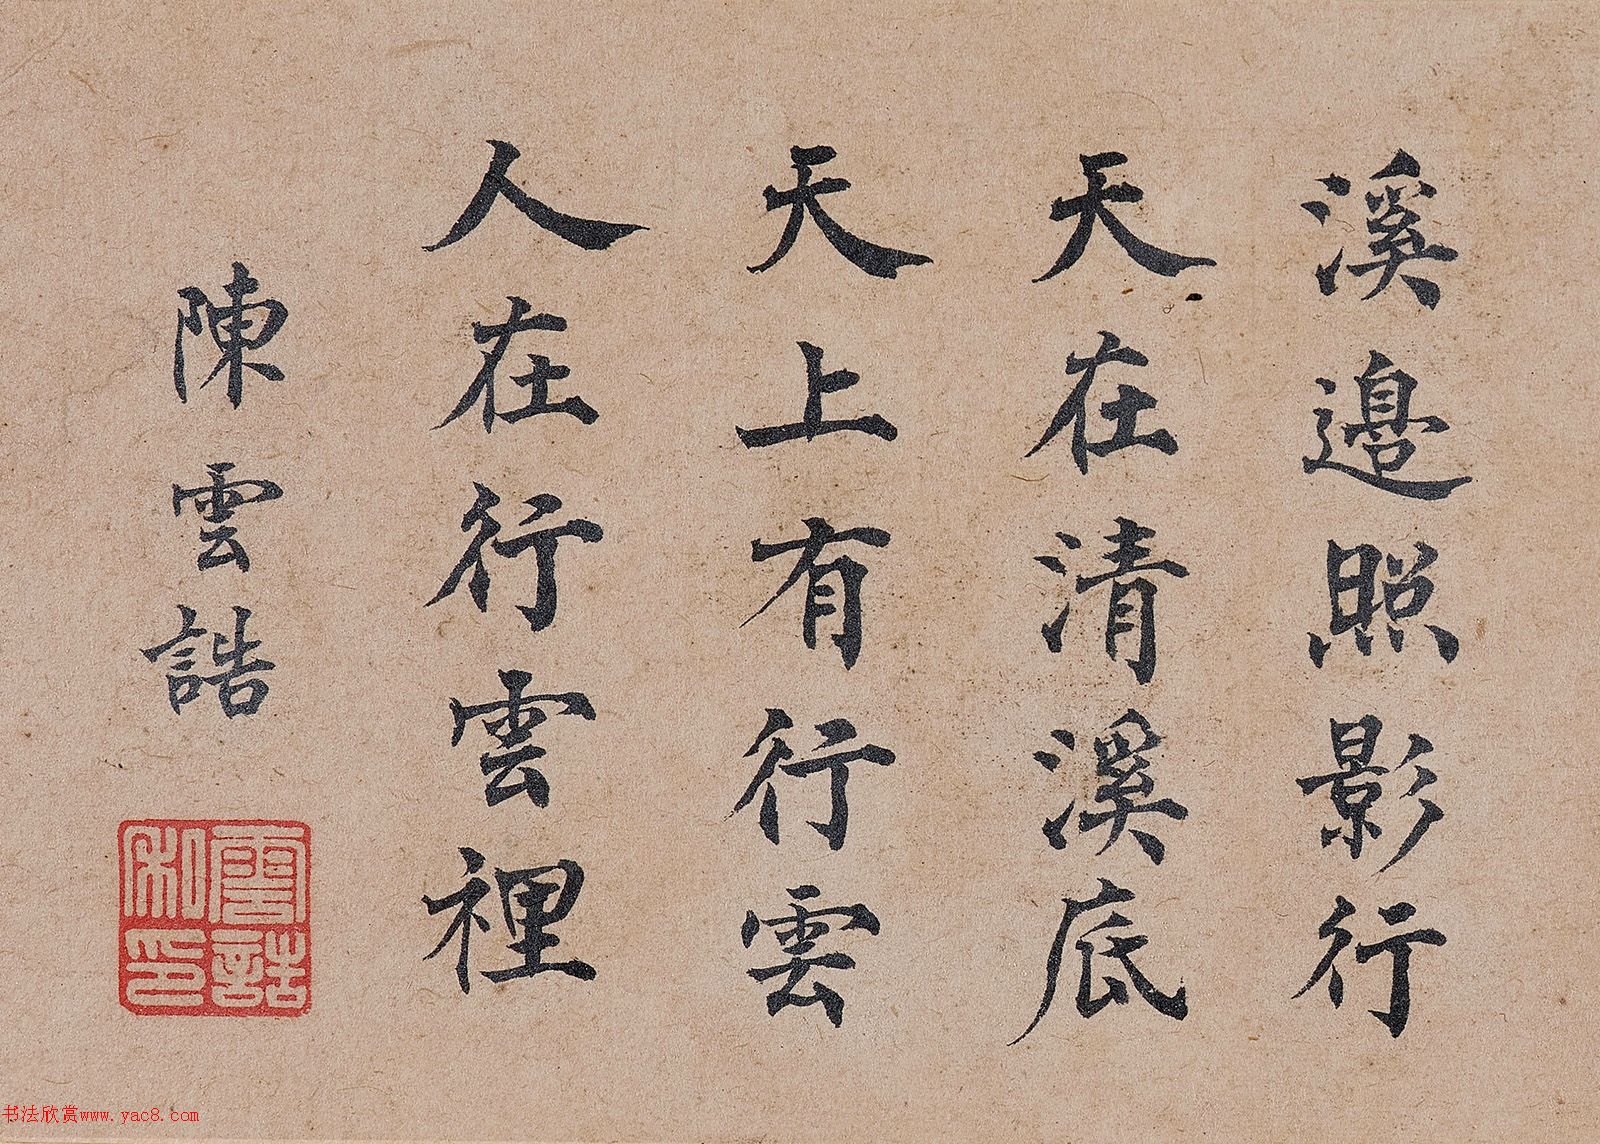 溪邊照影行
天在清溪底
天上有行雲
人在行雲裡
陳雲誥
雲誥私印
书法欣赏www.yac8.com